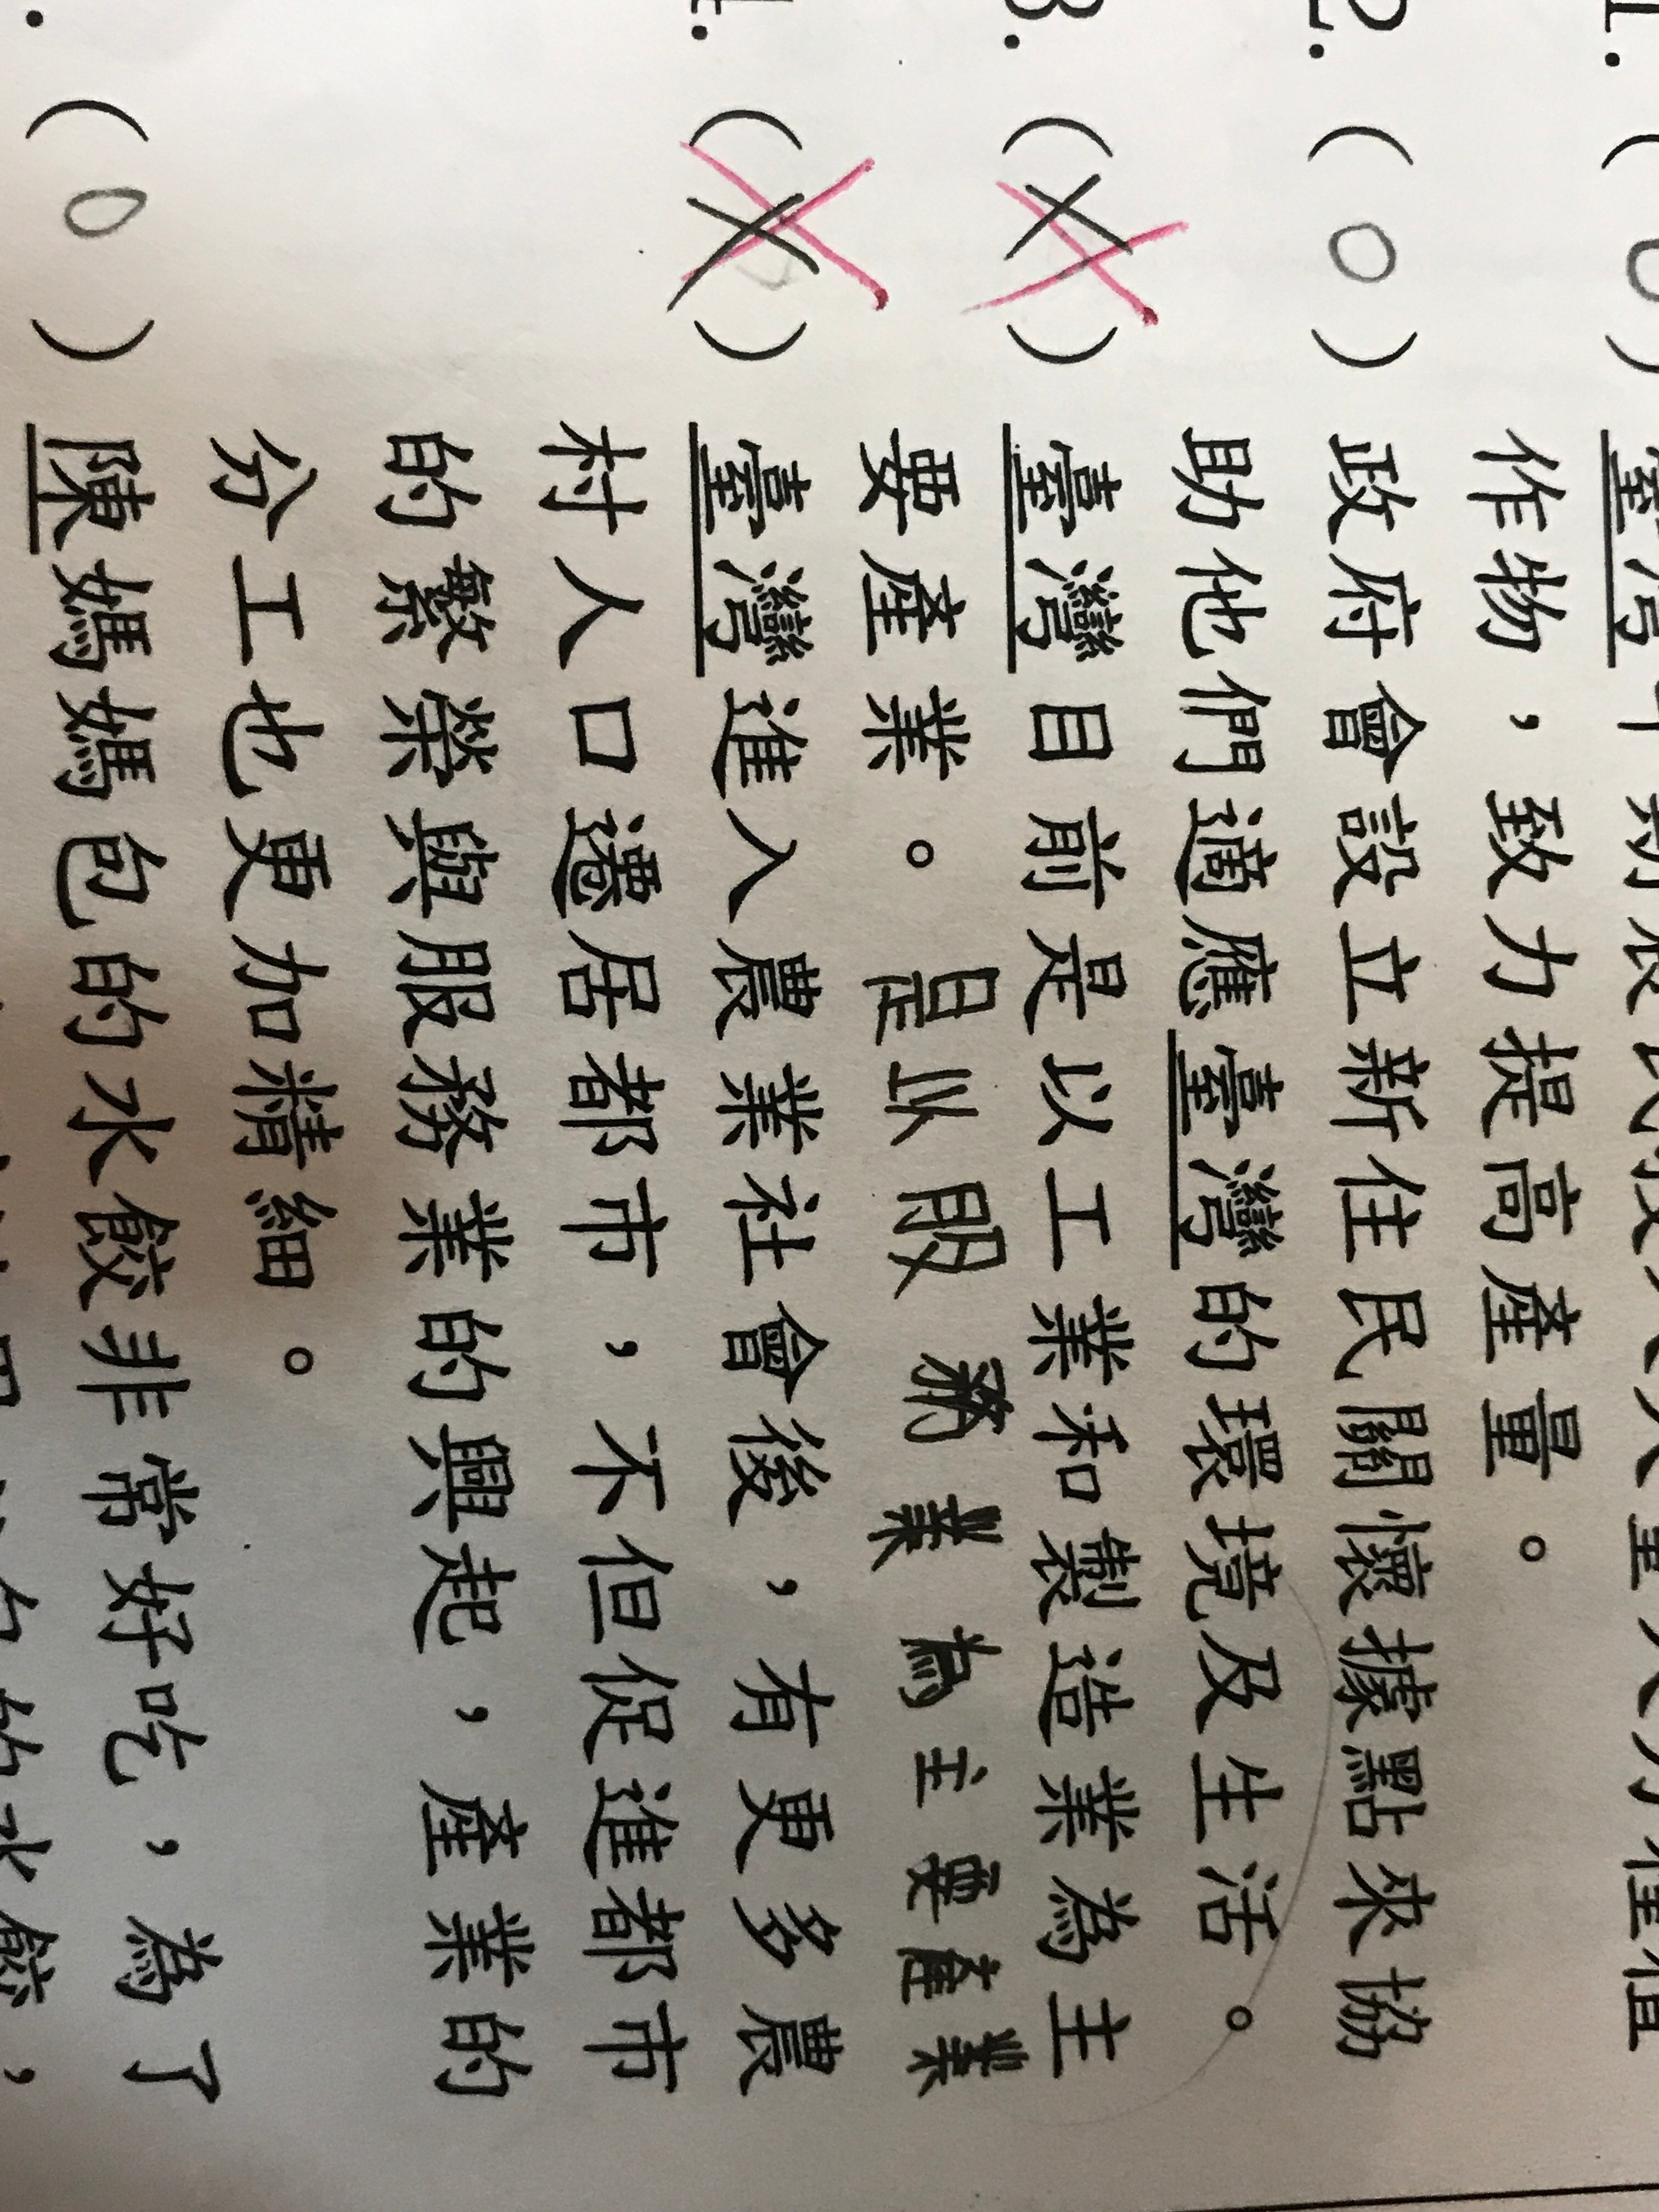 作物，致力提高產量。
2.（O）政府會設立新住民關懷據點來協
助他們適應臺灣的環境及生活。
3.（X）臺灣目前是以工業和製造業為主
要產業。是以服務業為主要產業
4.（X）臺灣進入農業社會後，有更多農
村人口遷居都市，不但促進都市
的繁榮與服務業的興起，產業的
分工也更加精細。
（O）陳媽媽包的水餃非常好吃，為了